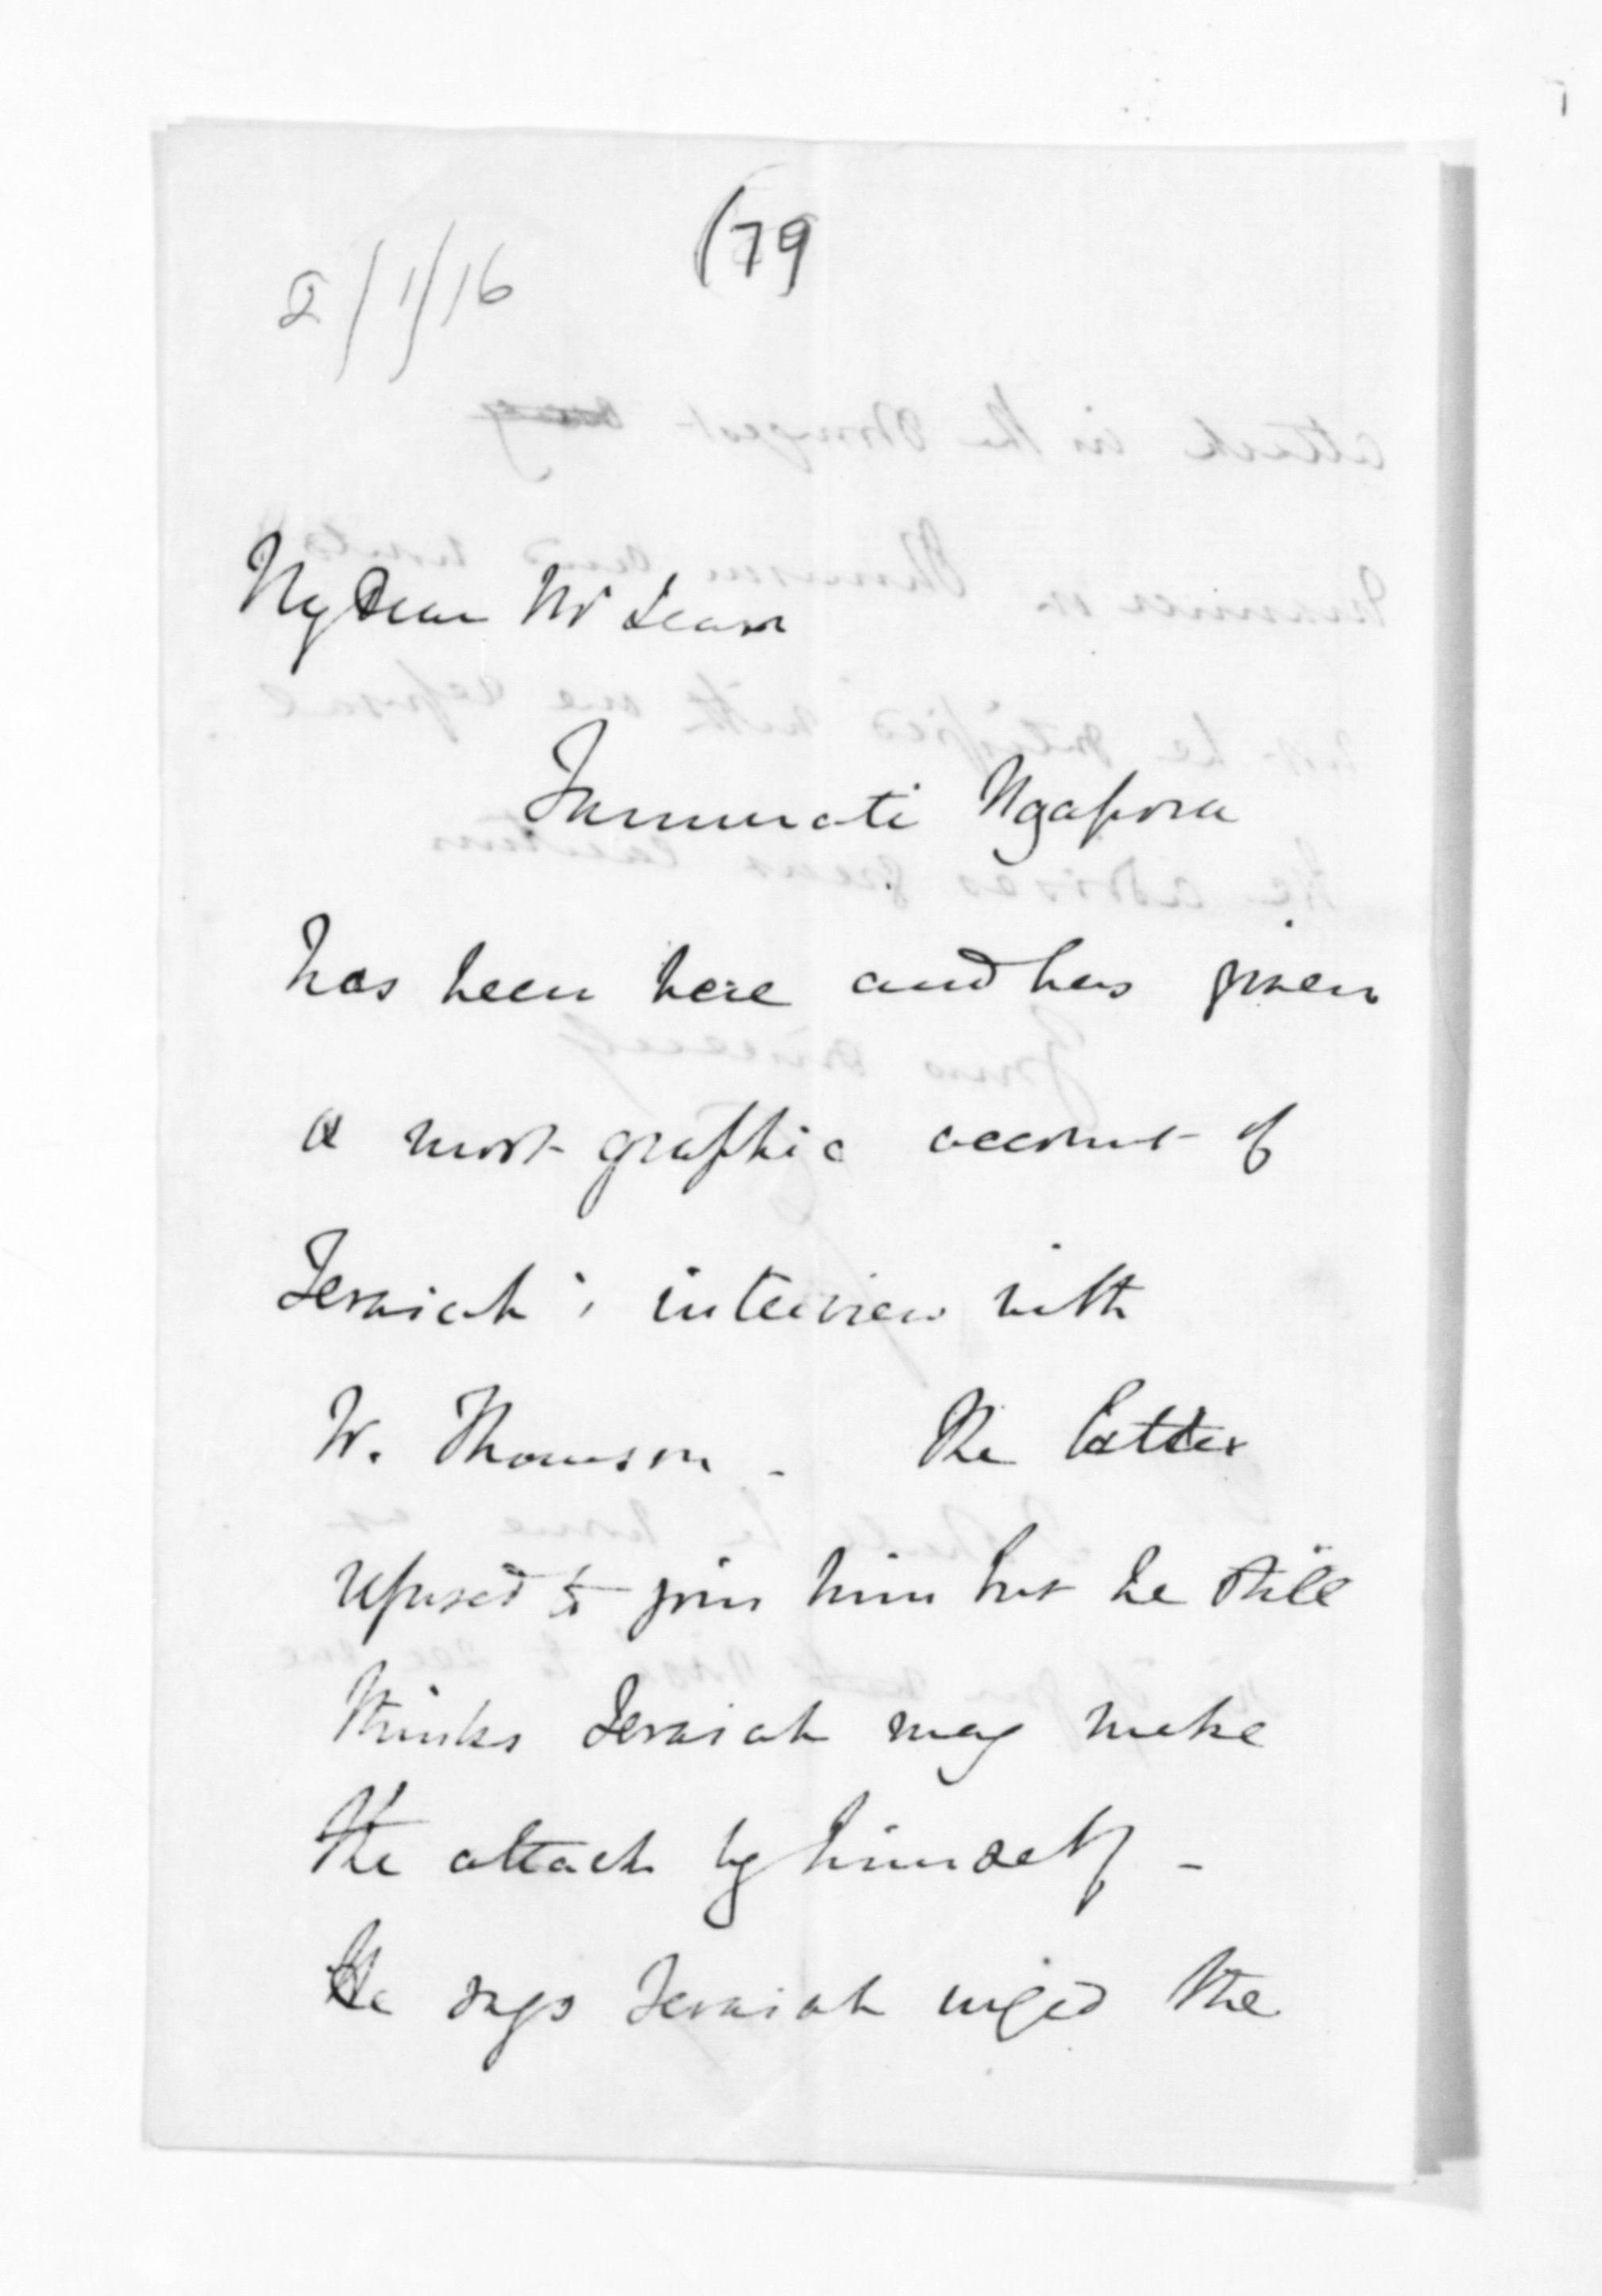 (79
2/1/16
My Dear Mr Lean
Tamati Ngapora
has been here and has given
a most graphic account of
Teraiah's interview with
W. Thomson - The latter
refused to join him but he still
thinks Teraiah may make
the attack by himself -
He says Teraiah urged the